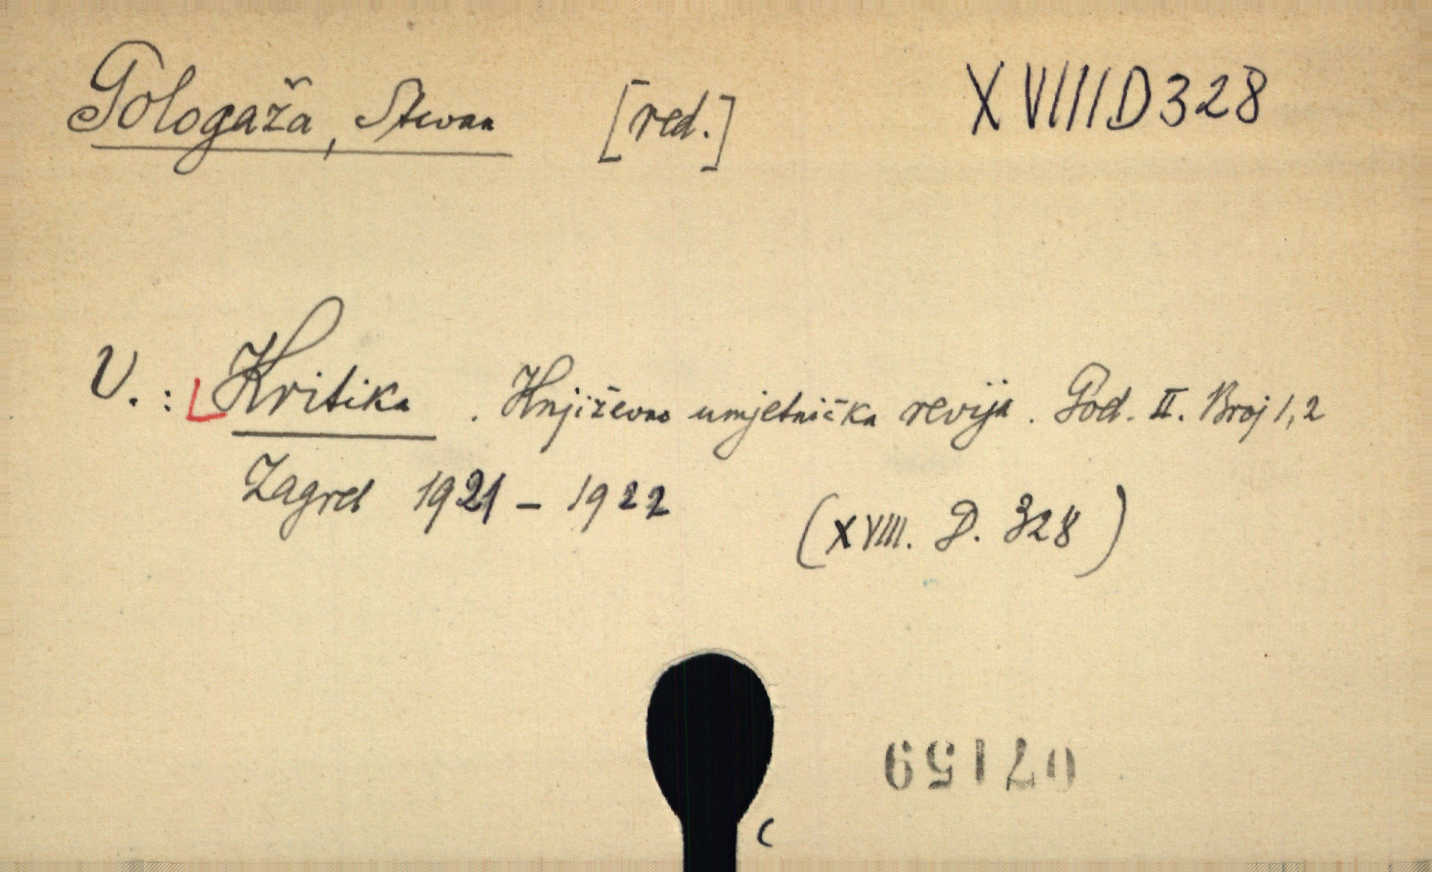 Gologaža, Stevan [red.] XVIII D 328
V.: Kritika. Književno umjetnička revija. God. II. Broj 1, 2
Zagreb 1921 – 1922
(XVIII. D. 328)
07159